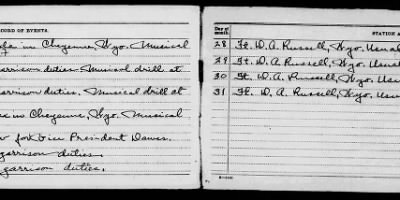 CORD OF EVENTS.
in Cheyenne, Wyo. Musical
garrison duties. Musical drill at
garrison duties. Musical drill at
in Cheyenne, Wyo. Musical
for Vice President Dawes.
garrison duties.
garrison duties.
Day of month.
STATION A
28 Ft. D. A. Russell, Wyo. Usual
29 Ft. D. A. Russell, Wyo. Usual
30 Ft. D. A. Russell, Wyo. Usu
31 Ft. D. A. Russell, Wyo. Usu